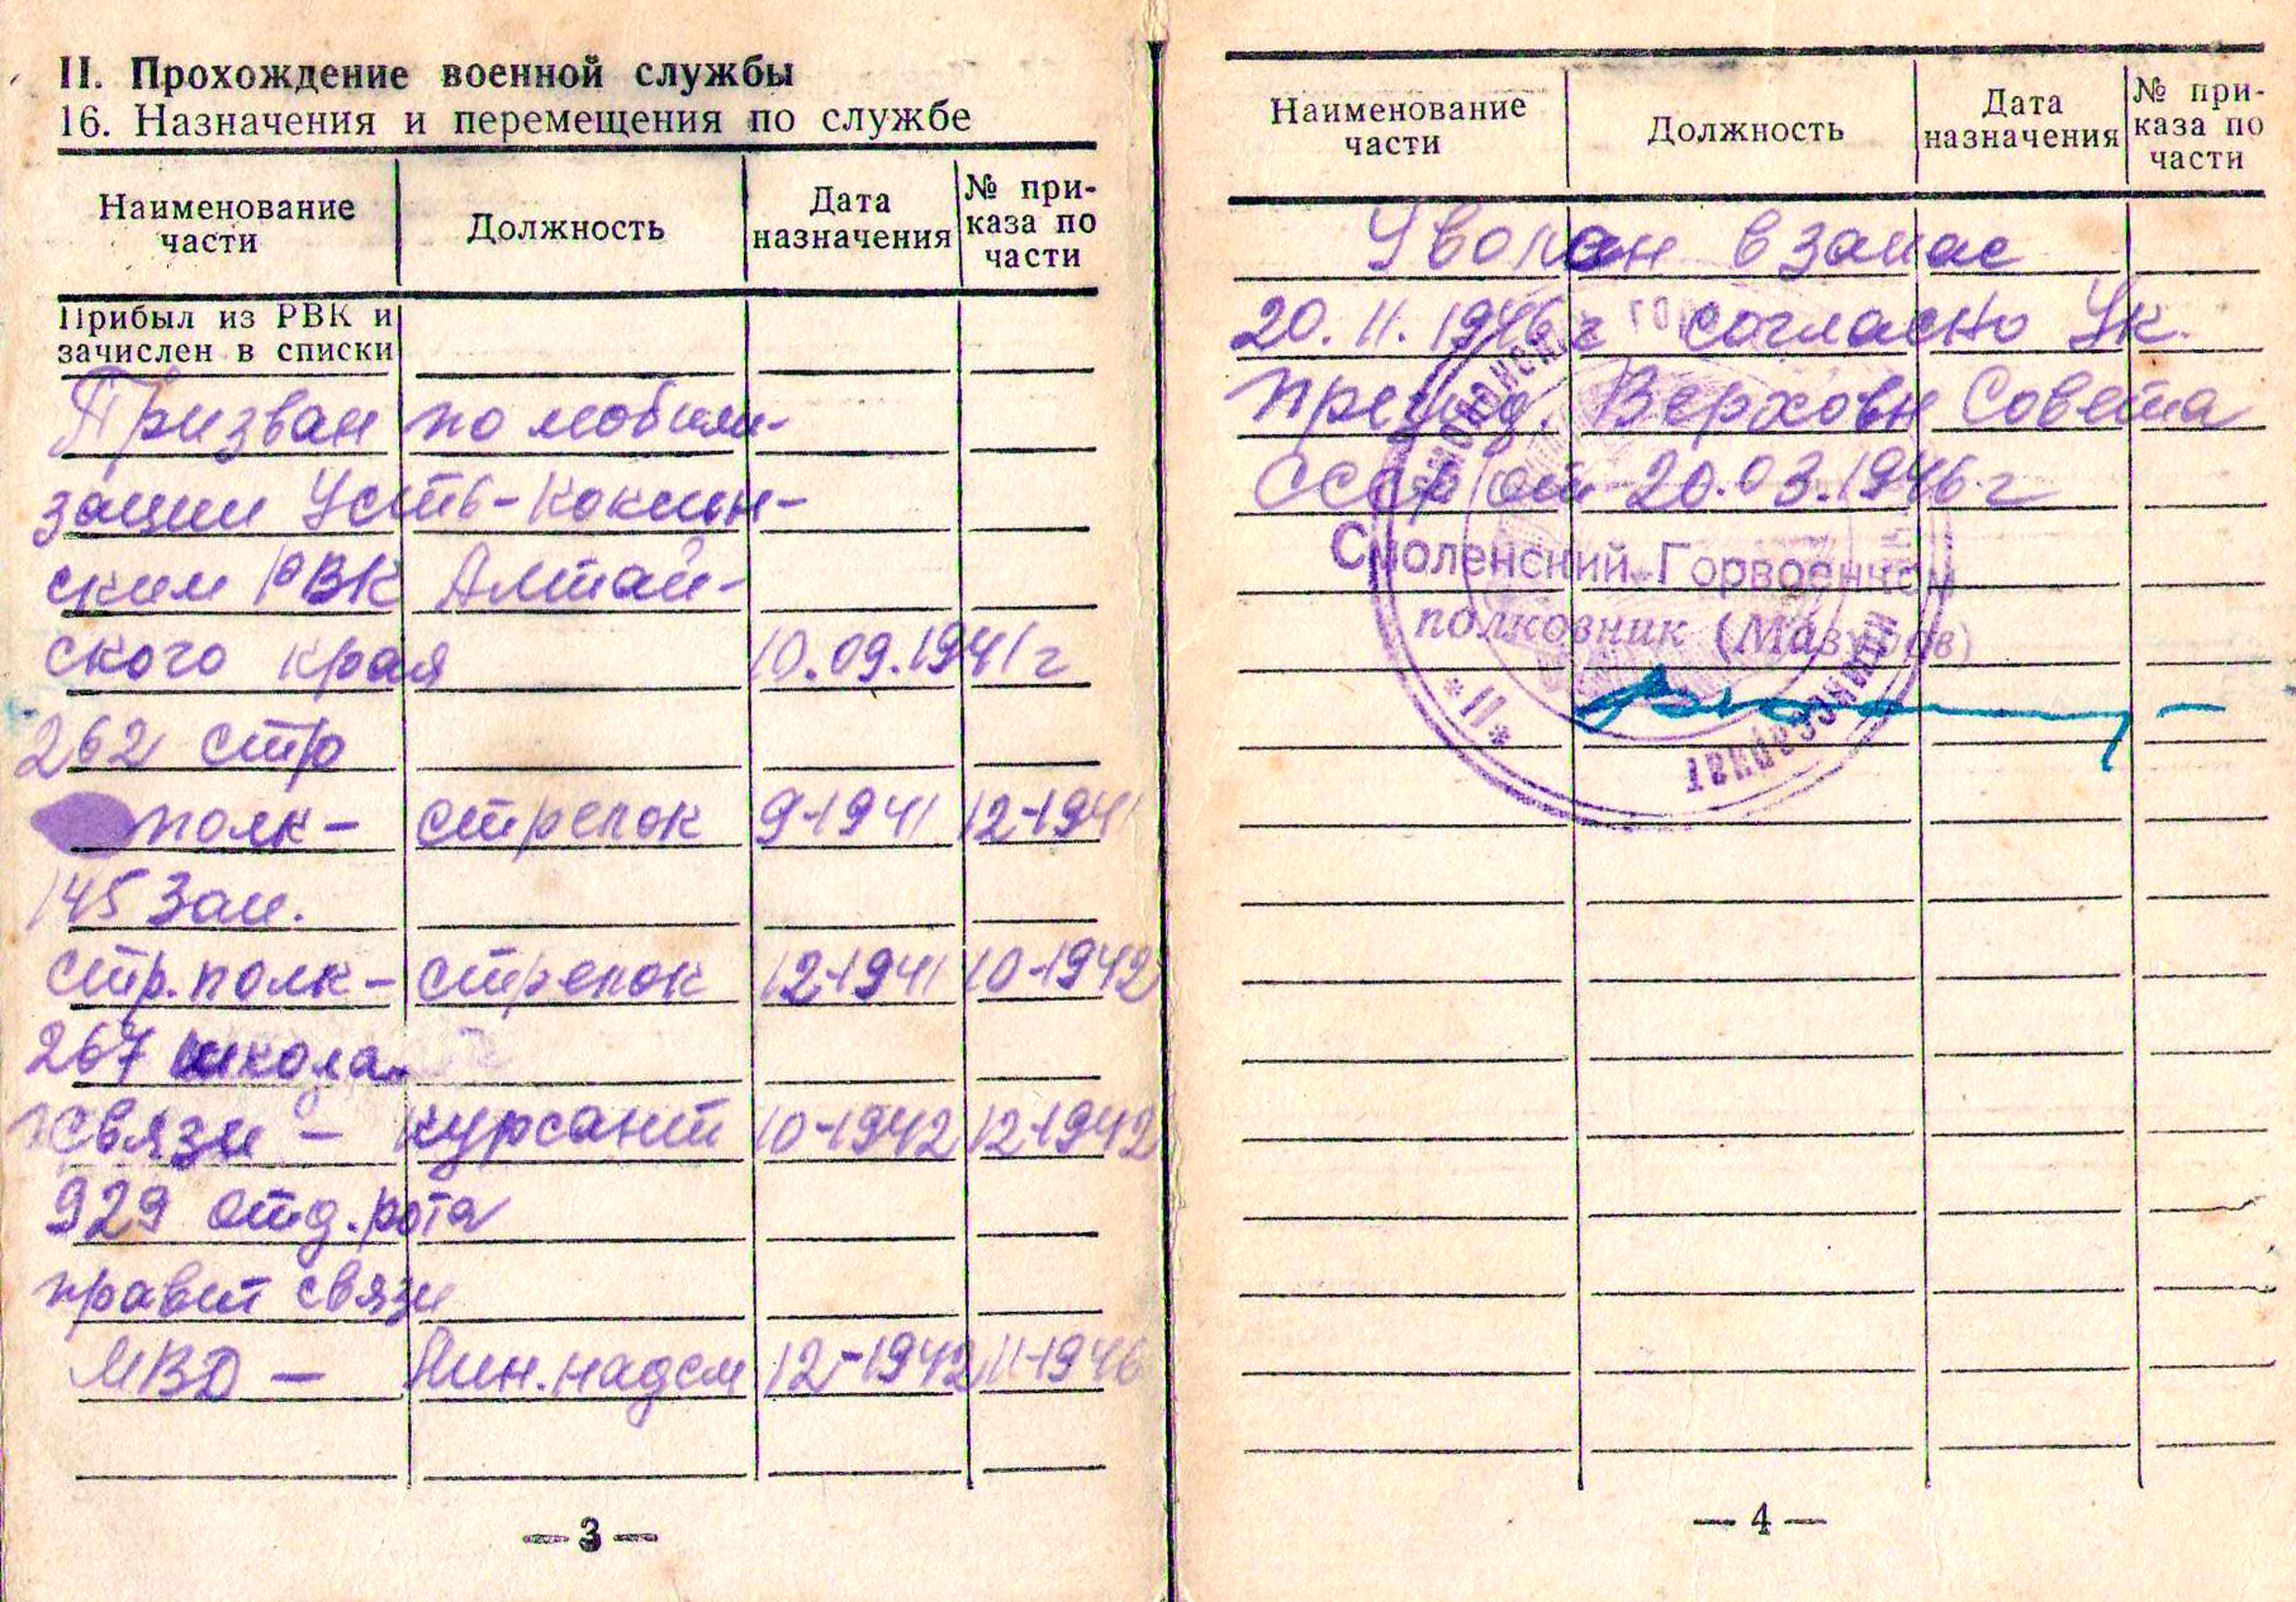 II. Прохождение военной службы
16. Назначения и перемещения по службе
Наименование части
Должность
Дата назначения
№ при-каза по части
Прибыл из РВК и
зачислен в списки
Призван по мобили-
зации Усть-Коксин-
ским РВК Алтай-
ского края 10.09.1941г
262 стр
полк- стрелок 9-1941 12-1941
145 Зап.
стр. полк- стрелок 12-1941 10-1942
267 школа
связи - курсант 10-1942 12-1942
929 отд. рота
правит связи
МВД - Лин. надсм 12-1942 11-1946
— 3 —
Наименование части
Должность
Дата назначения
№ при-каза по части
Уволен в запас
20.11.1946г согласно Ук.
През. Верховн Совета
СССР от 20.03.1946г
Смоленский Горвоенком
полковник (Мазуров)
*11*
— 4 —